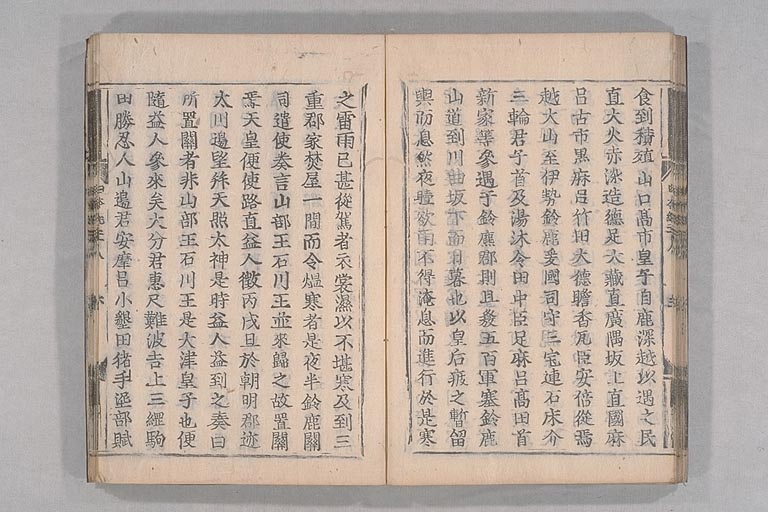 食到積殖山口高市皇子自鹿深越以遇之民
直大火赤染造德足大藏直廣隅坂上直國麻
呂古市黒麻呂竹田大德膽香瓦臣安倍從焉
越大山至伊勢鈴鹿爰國司守三宅連石床介
三輪君子首及湯沐令田中臣足麻呂高田首
新家等參遇于鈴鹿郡則且發五百軍塞鈴鹿
山道到川曲坂下而日暮也以皇后疲之暫留
輿而息然夜曀欲雨不得淹息而進行於是寒
之雷雨已甚從駕者衣裳濕以不堪寒及到三
重郡家焚屋一間而令熅寒者是夜半鈴鹿關
司遣使奏言山部王石川王並來歸之故置關
焉天皇便使路直益人徵丙戌旦於朝明郡迹
太川邊望拜天照太神是時益人益到之奏曰
所置關者非山部王石川王是大津皇子也便
隨益人參來矣大分君惠尺難波吉士三經駒
田勝忍人山邊君安摩呂小墾田猪手泥部賦